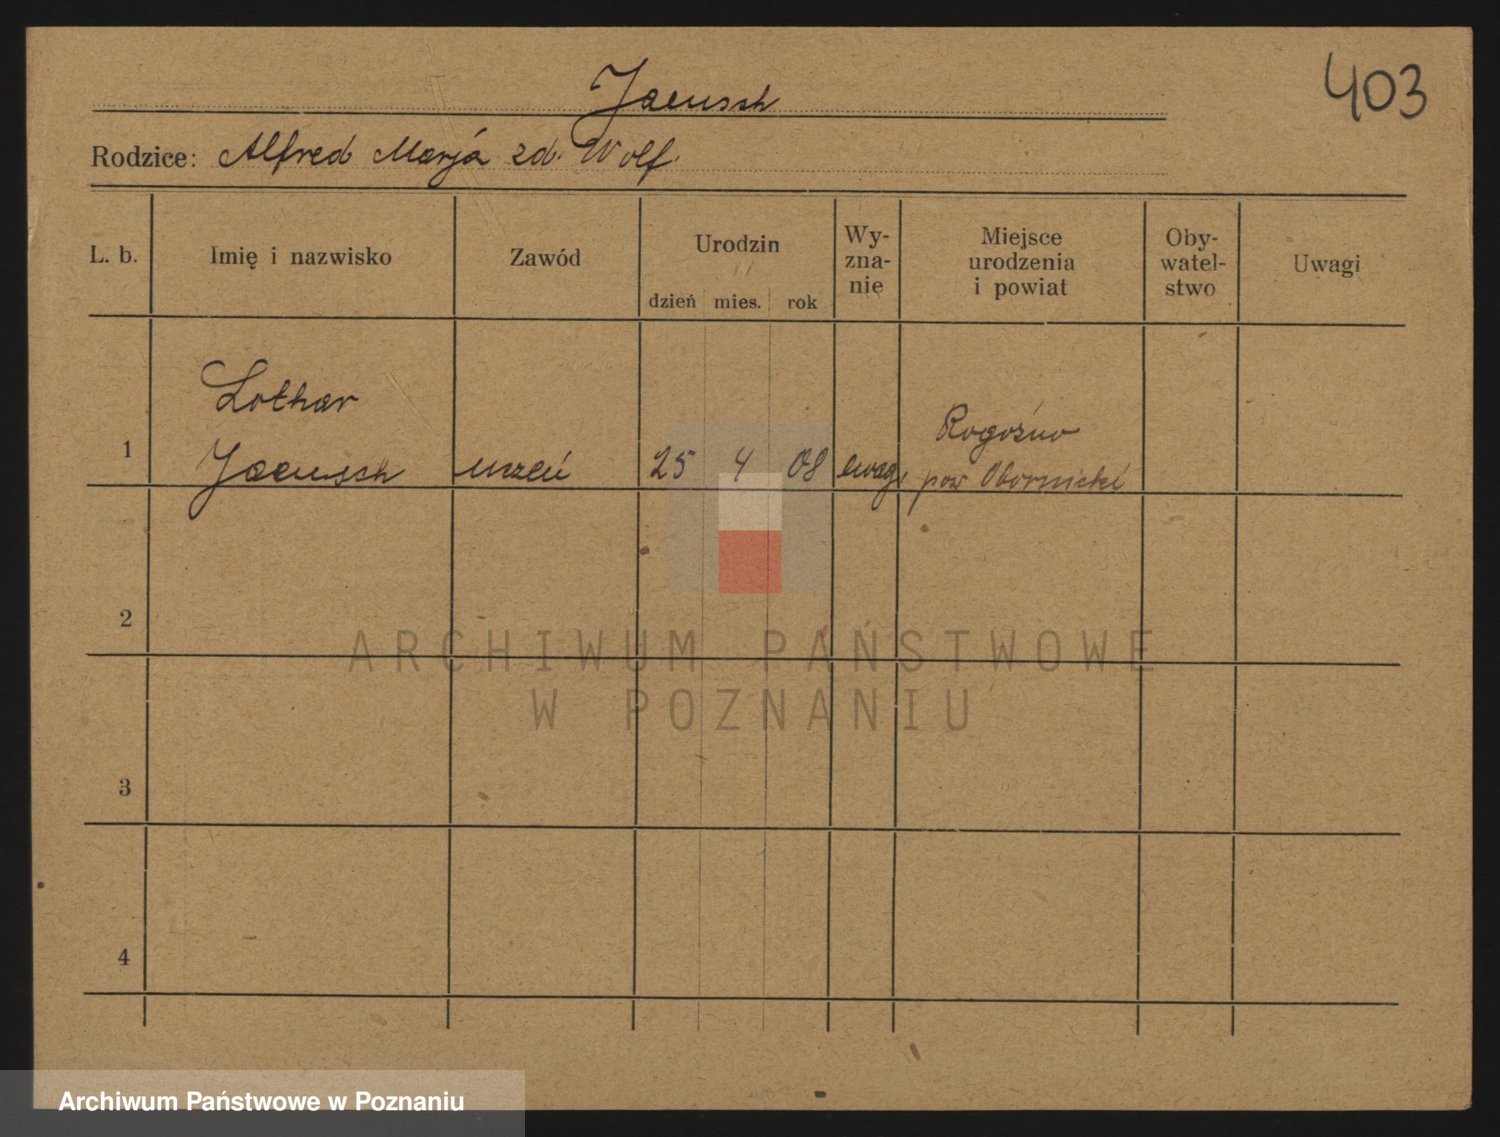 403
Jaeusch
Rodzice: Alfred Marja zd. Wolf.
L. b.
Imię i nazwisko
Zawód
Urodzin
dzień mies. rok
Wy-
zna-
nie
Miejsce
urodzenia
i powiat
Oby-
watel-
stwo
Uwagi
Lothar
1 Jaeusch uczeń 25 4 08 ewag. Rogoźno
pow Obornicki
2
ARCHIWUM PAŃSTWOWE
W POZNANIU
3
4
Archiwum Państwowe w Poznaniu